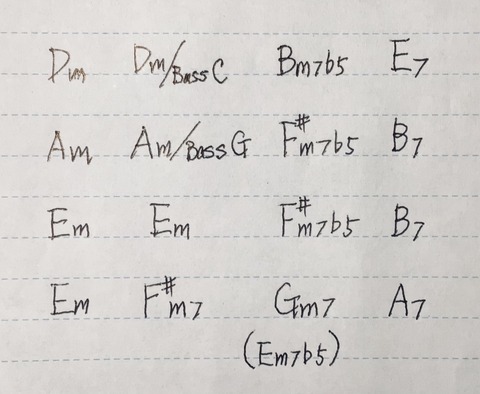 Dm Dm/Bass C Bm7b5 E7
Am Am/Bass G F#m7b5 B7
Em Em F#m7b5 B7
Em F#m7 Gm7 A7
(Em7b5)